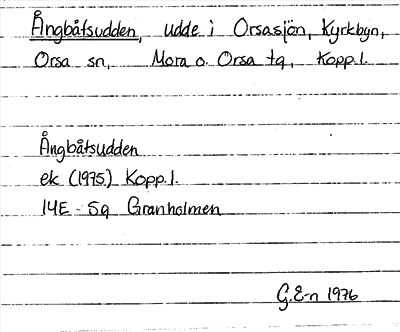 Ångbåtsudden, udde i Orsasjön, Kyrkbyn,
Orsa sn, Mora o. Orsa tg, Kopp.l.
Ångbåtsudden
ek (1975) Kopp.l.
14E - 5g Granholmen
G.E-n 1976